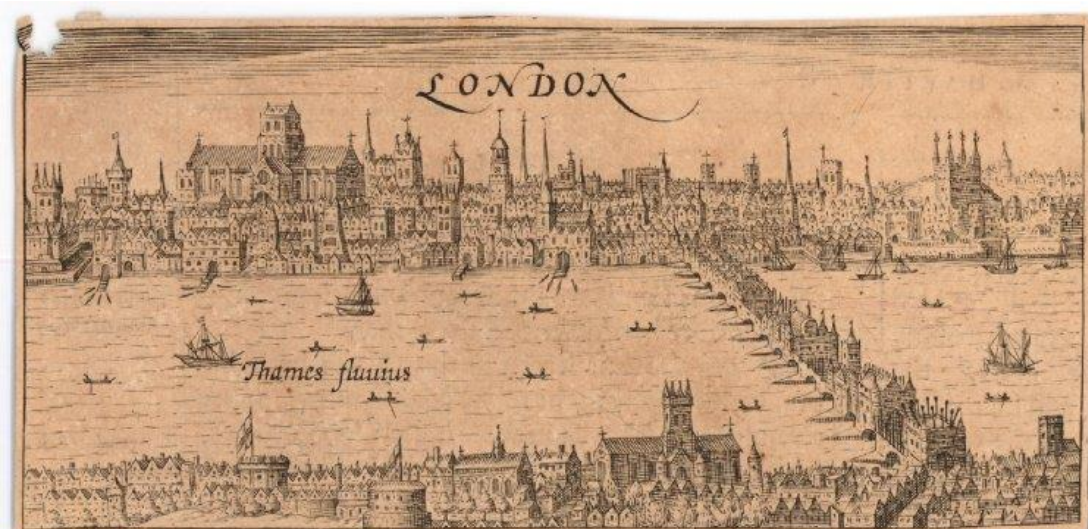 LONDON
Thames fluuius